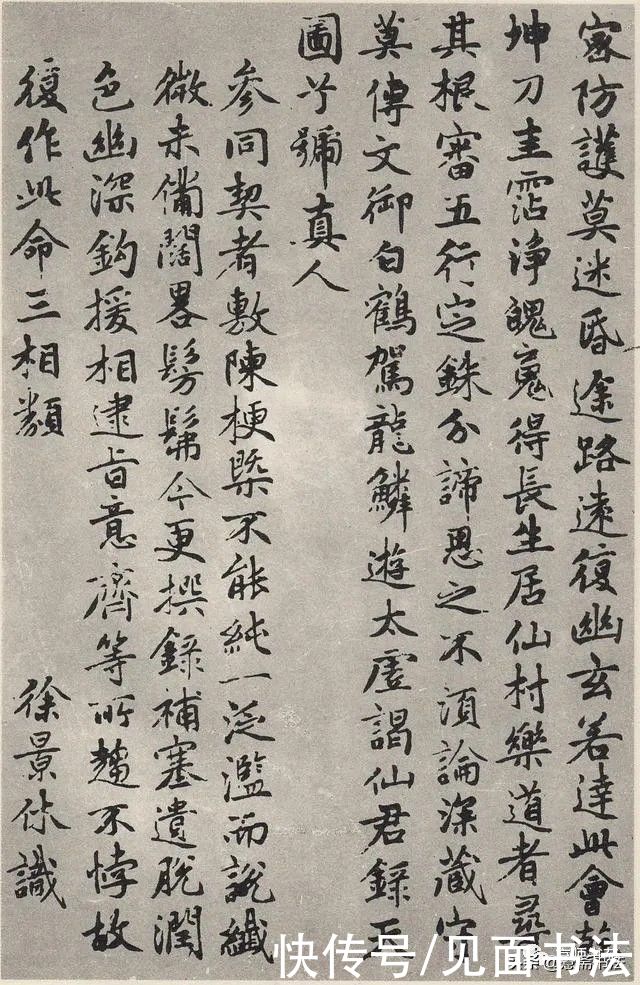 密防護莫迷昏途路遠復幽玄若達此會乾
坤刀圭霑淨魄魂得長生居仙村樂道者尋
其根審五行定銖分諦思之不須論深藏守
莫傳文御白鶴駕龍鱗遊太虛謁仙君錄天
圖兮號真人
參同契者敷陳梗槩不能純一泛濫而說纖
微未備闊畧髣髴今更撰錄補塞遺脫潤
色幽深鈎援相逮旨意齊等所趨不悖故
復作此命三相類
徐景休識
快传号/见面书法
头条